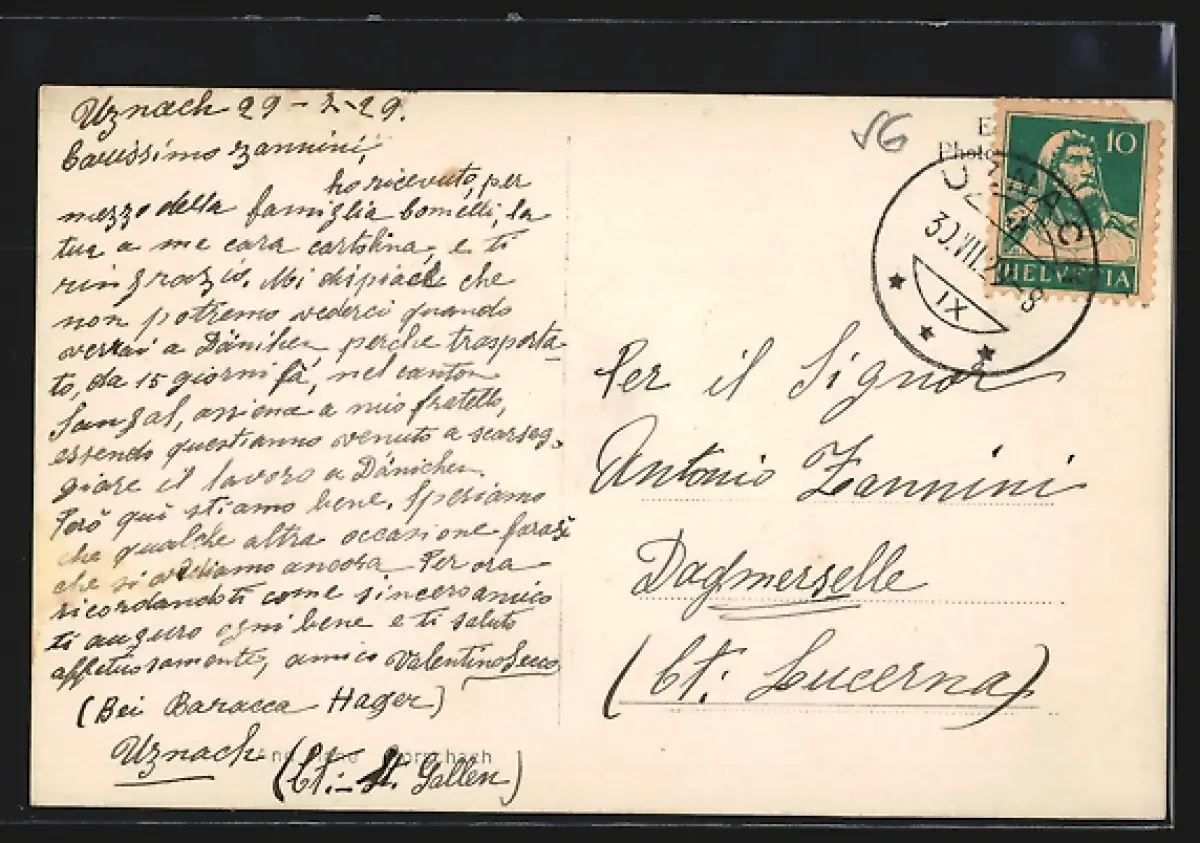 Uznach 29-7-29.
Carissimo Zannini,
ho ricevuto, per
mezzo della famiglia Bomelli, la
tua a me cara cartolina, e ti
ringrazio. Mi dispiace che
non potremo vederci quando
verrai a Däniken, perche trasporta-
to, da 15 giorni fà, nel canton
Sangal, assieme a mio fratello,
essendo quest'anno venuto a scarseg-
giare il lavoro a Dänichen.
Però quì stiamo bene. Speriamo
che qualche altra occasione farà sì
che si vediamo ancora. Per ora
ricordandoti come sincero amico
ti auguro ogni bene e ti saluto
affettuosamente, amico Valentino Secco
(Bei Baracca Hager)
Uznach (Ct. St. Gallen)
56
Photo
UZNACH
30.VII.
IX
10
HELVETIA
Per il Signor
Antonio Zannini
Dagmerselle
(Ct. Lucerna)
Rorschach